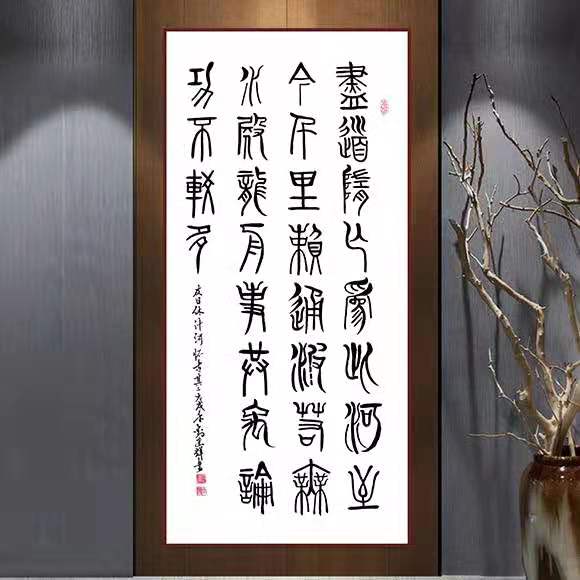 盡道隋亡為此河至
今千里賴通波若無
水殿龍舟事共禹論
功不較多
皮日休汴河懷古其二戊戌年書